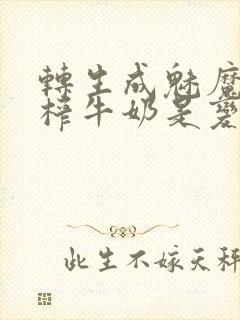 轉生成魅魔
榨牛奶是變
此生不嫁天秤